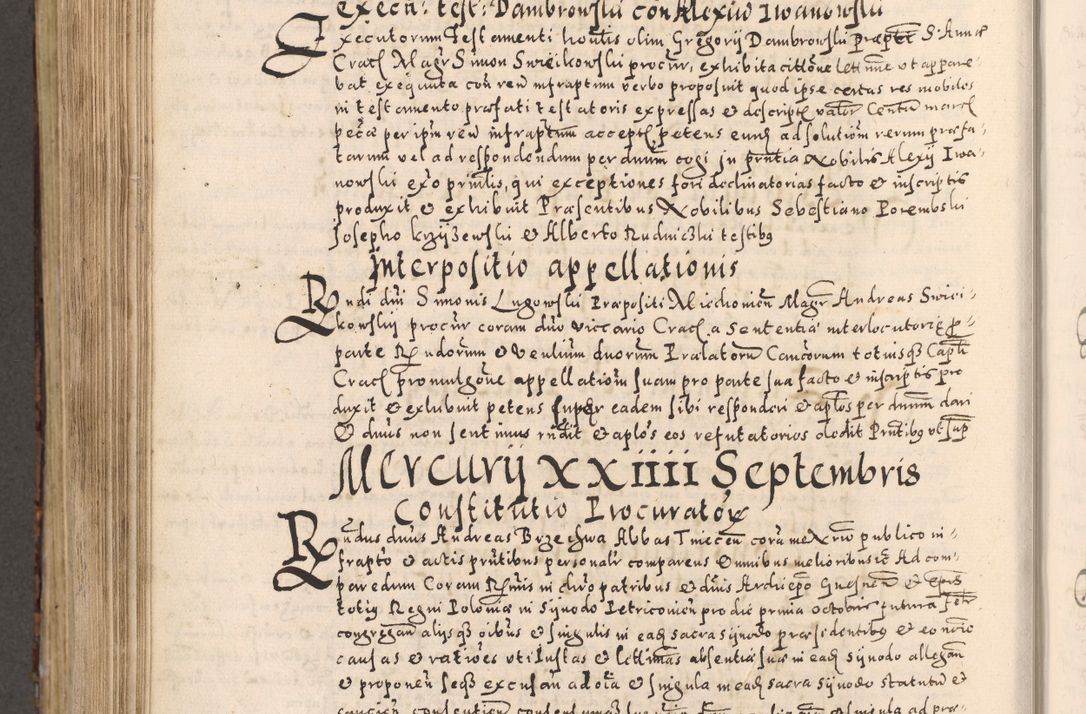 Execu: test: Dambrowskii con Alexiu Iwanowskii
Executorum Testamenti honlis olim Gregorij Dambrowskij præptti S. Annæ
Crac Magr Simon Swieikowskij procur, exhibita citlone letinne ut appare-
bat exequuta con reu infraptum verbo proposuit quod ipse certas res mobiles
in testamento præfati testatoris expressas et descript valor Centu marc
pecæ per ipm reu infraptum accept petens eund ad solutiom rerum præfa-
tarum vel ad respondendum per dnum cogi in pntia Nobilis Alexij Iwa-
nowskij exo prinlis, qui exceptiones fori declinatorias facto et inscriptis
produxit et exhibuit Præsentibus Nobilibus Sebestiano Porembski
Josepho Krzÿzewskij et Alberto Rudniczki testibg
Interpositio appellationis
Rndi dni Simonis Lugowskij Præpositi Miechovien Magr Andreas Swiei-
kowskij procur coram dno viccario Crac a Sententia interlocutoria p
parte R ndorum et Venlium duorum Prælatorum Canoorum totiusq Capli
Crac promulgone appellatiom suam pro parte sua facto et inscriptis pro
duxit et exhibuit petens super eadem sibi responderi et aplos per dnum dari
Et dnus non sentimus rndit et aplos eos refutatorios dedit Pntibg ut sup
Mercurij XXiiii Septembris
Constitutio Procurator
Rndus dnus Andreas Brzechwa Abbas Tinecen cora me Nrio publico in-
frapto et actis pntibus personalr comparens Omnibus melioribus Ad com-
parendum Coram Rmis in chro patribus et dnis Archiepo Gnesnen et epis
totig Regni Poloniæ in Sijnodo Petricovien pro die prima octobris futura
congregan alijsq oibus et singulis in ead sacra sijnodo præsidentibg et eo nōīe
causas et rationes uti Iustas et letimas absentiæ suæ in ead sijnodo allegan
et proponen seq excusan ad ota et singula in ead sacra sijnodo statutu et